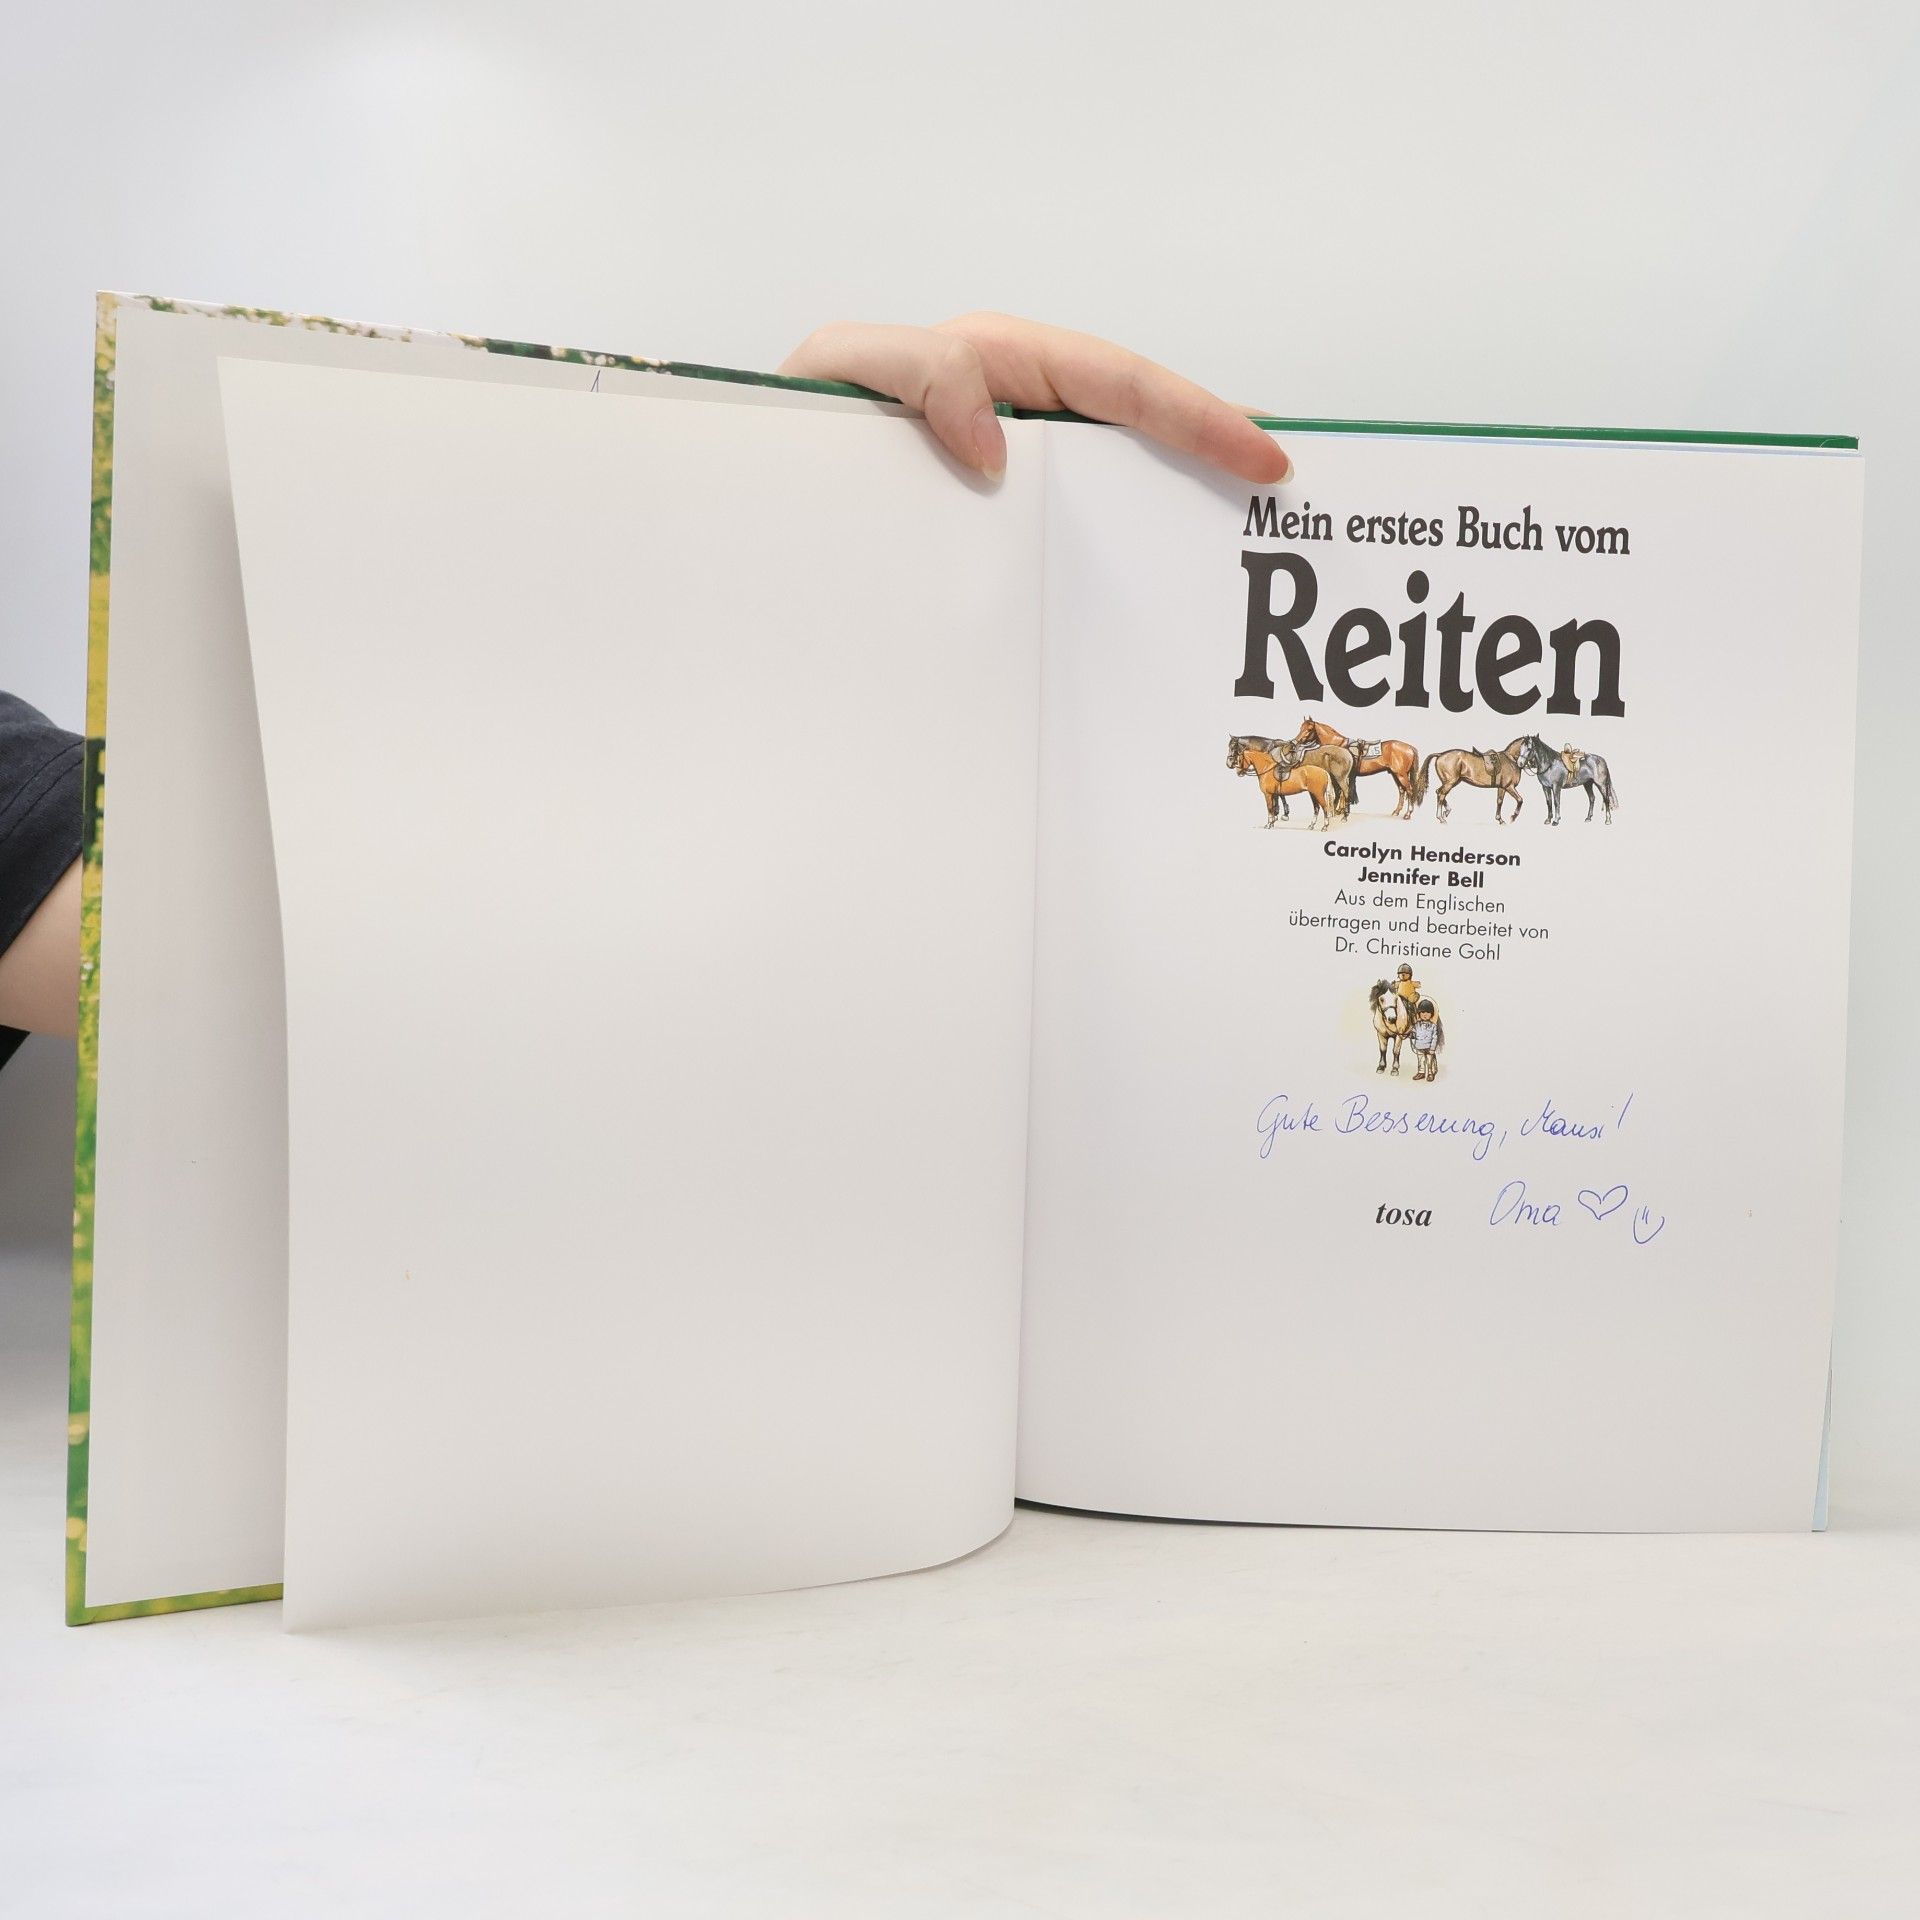 Mein erstes Buch vom
Reiten
Carolyn Henderson
Jennifer Bell
Aus dem Englischen
übertragen und bearbeitet von
Dr. Christiane Gohl
Gute Besserung, Mausi!
tosa Oma